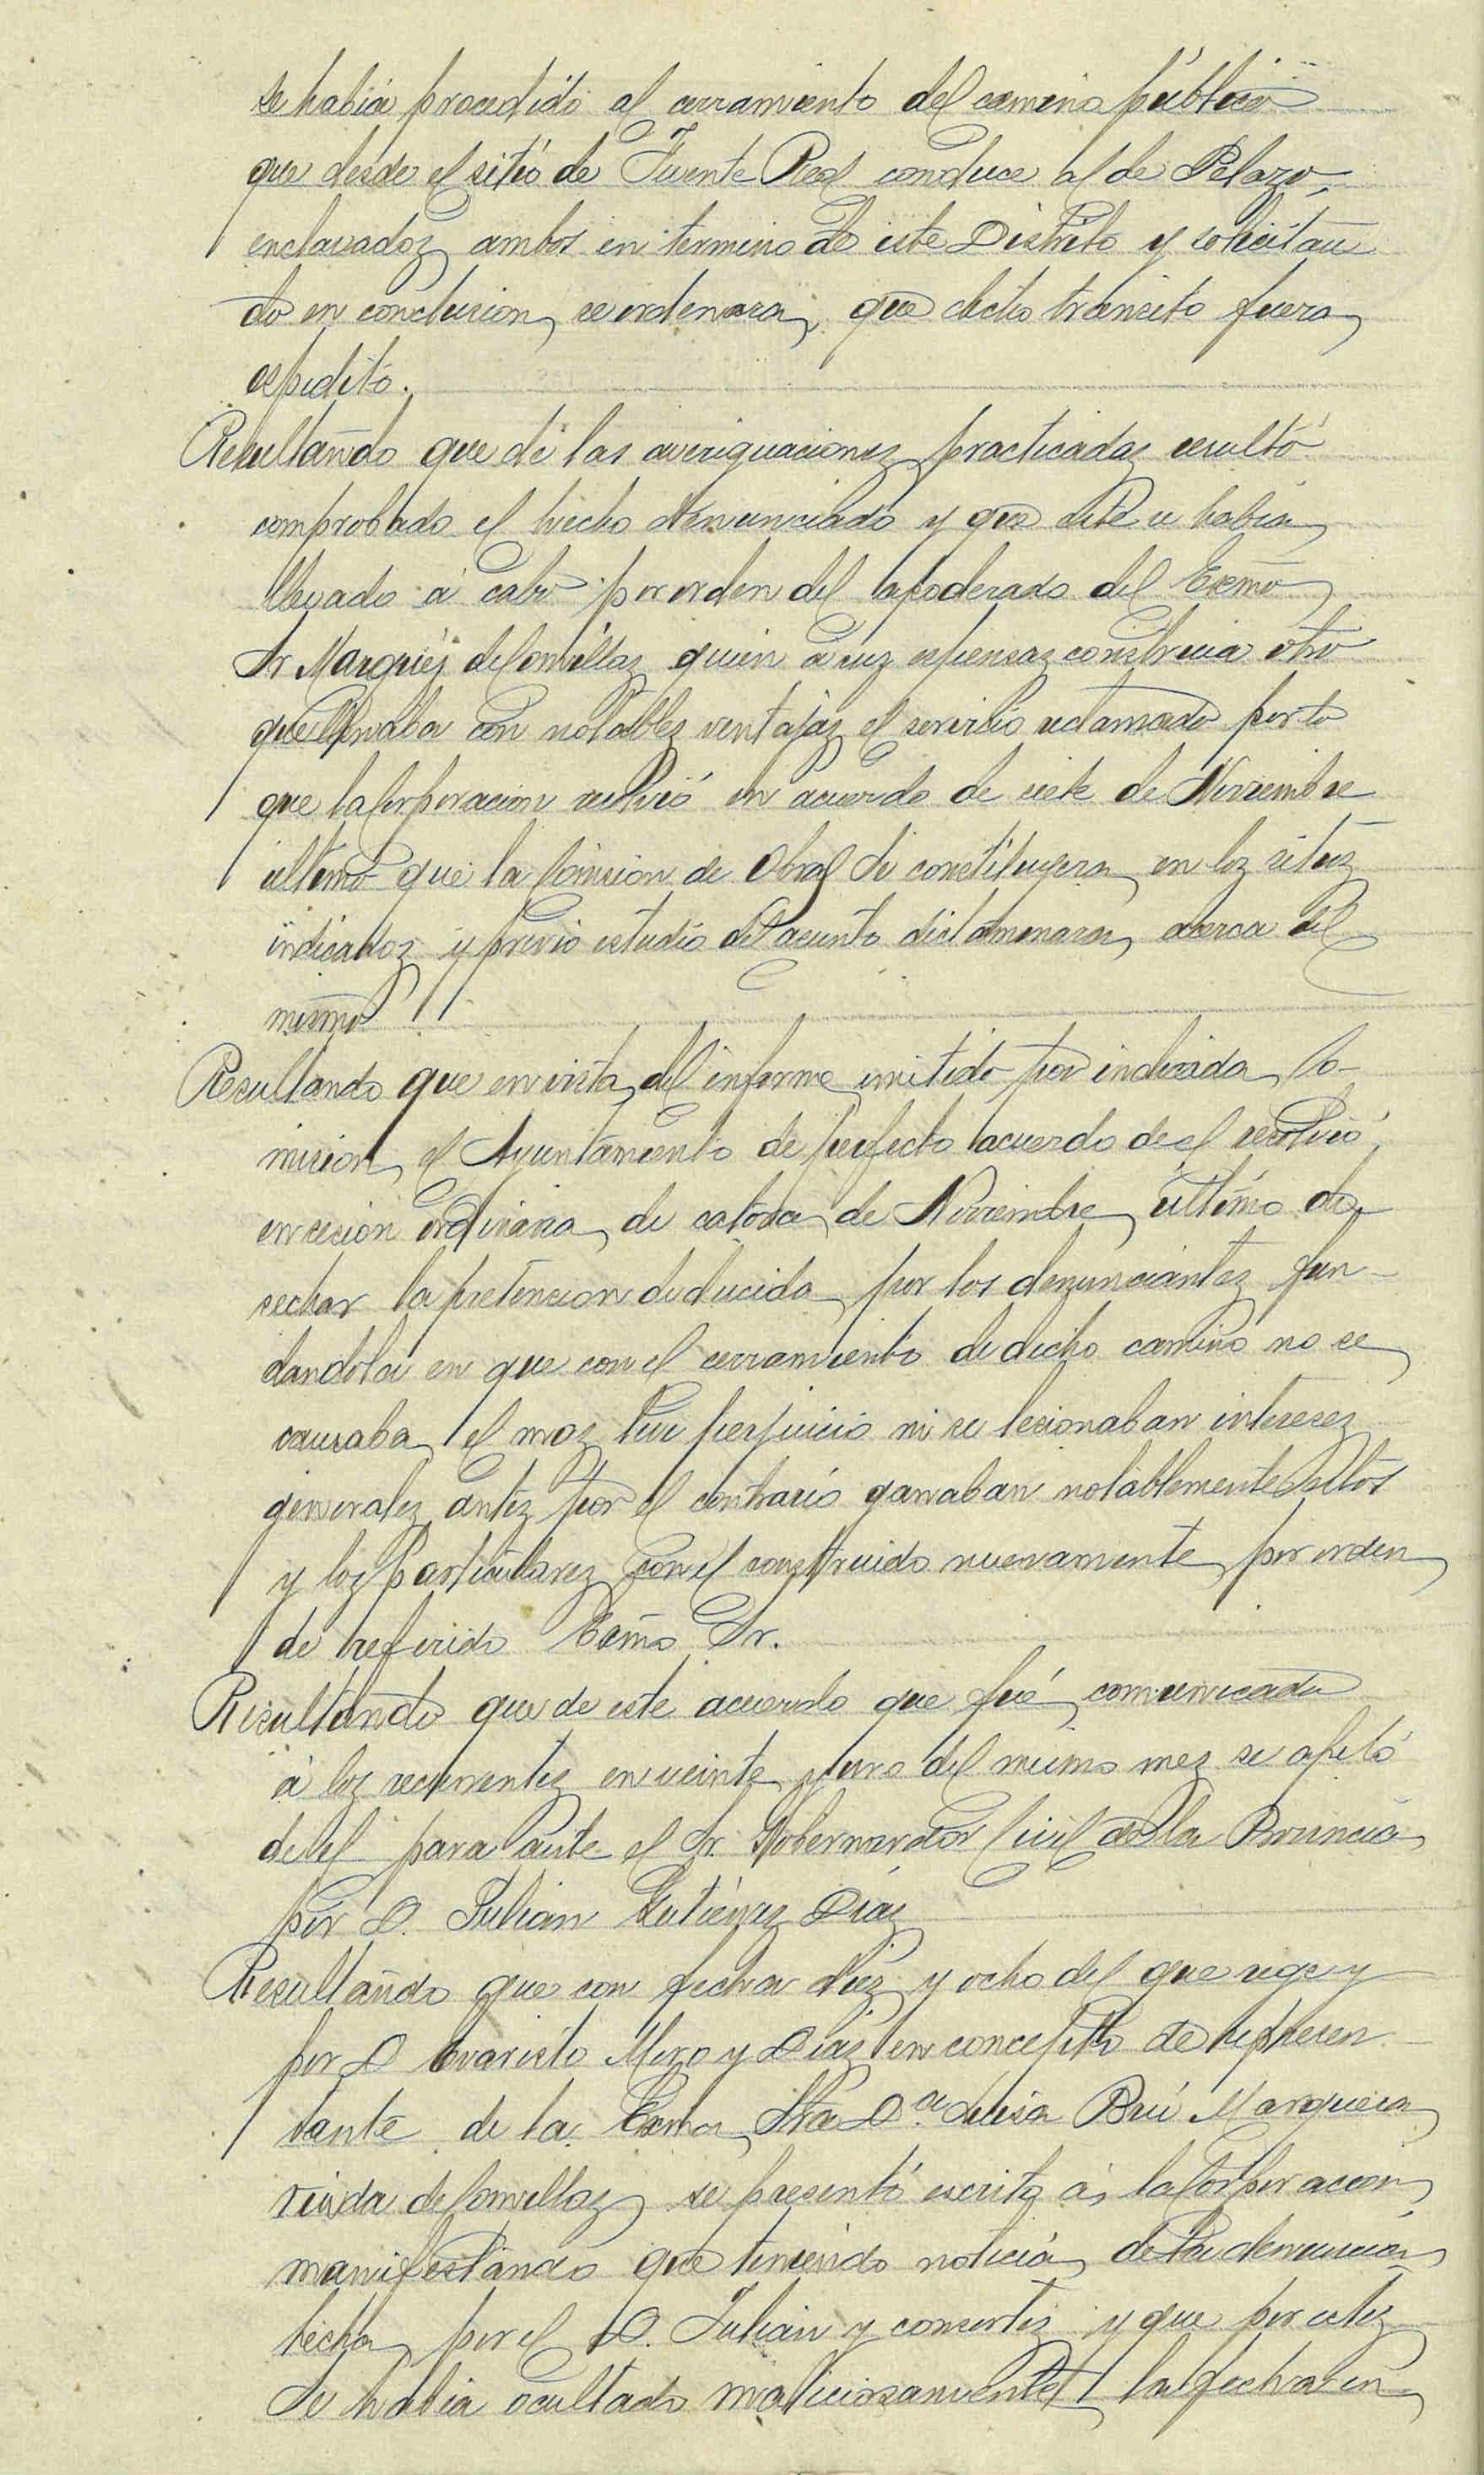 se habia procedido al cerramiento del camino público
que desde el sitio de Fuente Real conduce al de Pelazo,
enclavados ambos en termino de este Distrito y solicitan
do en conclusion, se ordenara, que dicho transito fuera
espedito.
Resultando que de las averiguaciones practicadas resultó
comprobado el hecho denunciado y que este se habia
llevado á cabo por orden del apoderado del Excmo
Sr Marqués de Comillas quien á sus espensas construia otro
que llenaba con notables ventajas el servicio reclamado por lo
que la Corporacion resolvió en acuerdo de siete de Noviembre
ultimo que la Comision de Obras se constituyera en los sitios
indicados y previo estudio del asunto dictaminara acerca del
mismo
Resultando que en vista del informe emitido por indicada Co-
mision el Ayuntamiento de perfecto acuerdo de el resolvió
en sesion ordinaria de catorce de Noviembre último de-
sechar la pretension deducida por los denunciantes fun-
dandola en que con el cerramiento de dicho camino no se
causaba el mas leve perjuicio ni se lesionaban intereses
generales antes por el contrario ganaban notablemente estos
y los particulares con el construido nuevamente por orden
de referido Excmo Sr.
Resultando que de este acuerdo que fué comunicado
á los recurrentes en veinte y uno del mismo mes se apeló
de el para ante el Sr. Gobernador Civil de la Provincia
por D. Julian Gutierrez Diaz
Resultando que con fecha diez y ocho del que rige y
por D Evaristo Moro y Diaz en concepto de represen
tante de la Excma Sra Dª Luisa Brú Marquesa
viuda de Comillas se presentó escrito á la Corporacion
manifestando que teniendo noticia de la denuncia
hecha por el D. Julian y consortes y que por estos
se habia ocultado maliciosamente la fecha en